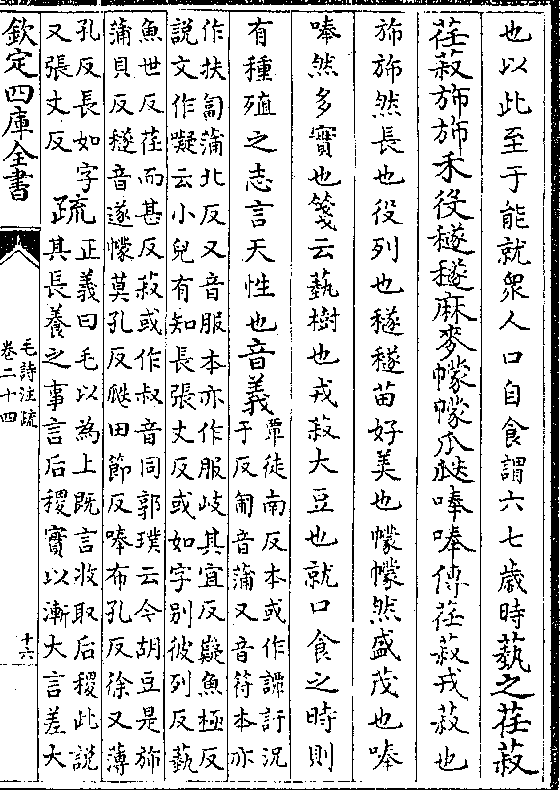 也以此至于能就衆人口自食謂六七歳時蓺之荏菽
荏菽斾斾禾役穟穟麻麥幪幪瓜瓞唪唪傳荏菽戎菽也
斾斾然長也役列也穟穟苗好美也幪幪然盛茂也唪
唪然多實也箋云蓺樹也戎菽大豆也就口食之時則
有種殖之志言天性也音義覃徒南反本或作譚訏況
于反匍音蒲又音符本亦
作扶匐蒲北反又音服本亦作服岐其宜反嶷魚極反
說文作㘈云小兒有知長張丈反或如字别彼列反蓺
魚世反荏而甚反菽或作叔音同郭璞云今胡豆是斾
蒲貝反穟音遂幪莫孔反瓞田節反唪布孔反徐又薄
孔反長如字
又張丈反
疏正義曰毛以為上既言收取后稷此説
其長養之事言后稷實以漸大言差大
欽定四庫全書
毛詩注疏
卷二十四
十六